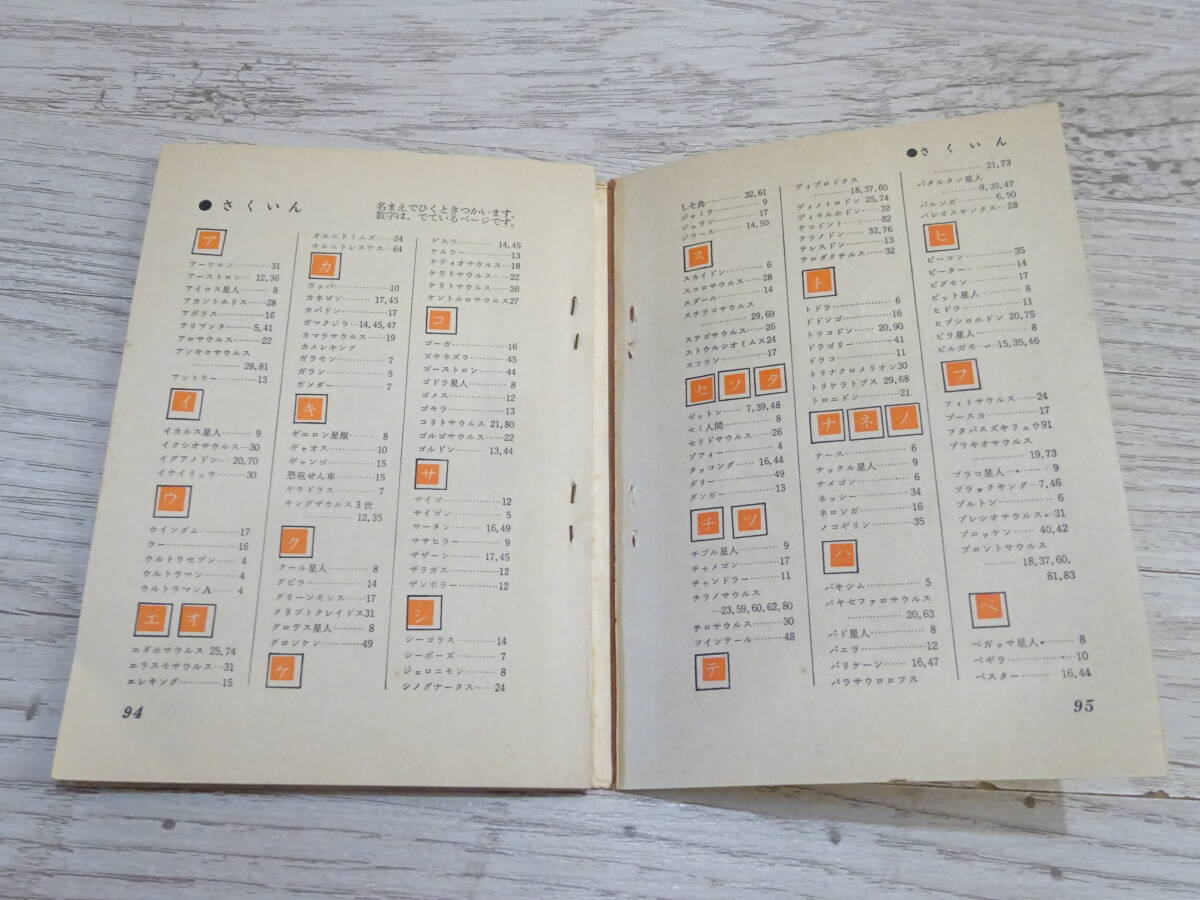 ●さくいん
名まえでひくときつかいます。
数字は，でているページです。
ア
アーケロン………31
アーストロン……12,36
アイロス星人……8
アカントホリス……28
アボラス…………16
アリブンタ………5,41
アロサウルス………22
アンキロサウルス
…………28,81
アントラー…………13
イ
イカルス星人……9
イクシオサウルス…30
イグアノドン…20,70
イナイリュウ………30
ウ
ウインダム…………17
ウー…………………16
ウルトラセブン……4
ウルトラマン………4
ウルトラマンA……4
エ オ
エダホサウルス 25,74
エラスモサウルス…31
エレキング…………15
オルニトミムズ……24
オルニトレステス 64
カ
ガッパ………………10
カネゴン………17,45
カバドン……………17
ガマクジラ…14,45,47
カマラサウルス……19
カメレキング
ガラモン……………7
ガラン………………5
ガンダー……………7
キ
ギエロン星獣………8
ギャオス……………10
ギャンゴ……………15
恐竜せん車…………15
ギラドラス…………7
キングザウルス3世
…………12,35
ク
クール星人…………8
グビラ………………14
グリーンモンス……17
クリプトクレイドス31
グロテス星人………8
グロンケン…………49
ケ
ゲスラ…………14,45
ケムラー……………13
ケティオサウルス…18
ケラトサウルス……22
ケリトサウルス……26
ケントルロサウルス27
コ
ゴーガ………………16
ゴキネズラ…………45
ゴーストロン………44
ゴドラ星人…………8
ゴメス………………12
ゴモラ………………13
コリトサウルス 21,80
ゴルゴサウルス……22
ゴルドン………13,44
サ
サイゴ………………12
サイゴン……………5
サータン………16,49
ササヒラー…………9
ザザーン………17,45
ザラガス……………12
ザンボラー…………12
シ
シーゴラス…………14
シーボーズ…………7
ジェロニモン………8
シノグナータス……24
94
●さくいん
しそ鳥…………32,61
ジャミラ……………9
ジェラン……………17
ジラース………14,50
ス
スカイドン…………6
スコロサウルス……28
スダール……………14
スチラコサウルス
…………29,69
ステゴサウルス……26
ストウルシオミムス24
スフラン……………17
セ ソ タ
ゼットン……7,39,48
セミ人間……………8
セリドサウルス……26
ゾフィー……………4
タッコング……16,44
ダリー………………49
ダンガー……………13
チ ツ
チブル星人…………9
チャメゴン…………17
チャンドラー………11
チラノサウルス
…23,59,60,62,80
チロサウルス………30
ツインテール………48
テ
ディプロドクス
…………18,37,60
ディメトロドン 25,74
ディモルホドン……32
テコドント…………82
テラノドン……32,76
テレスドン…………13
テロダクチルス……32
ト
トドラ………………6
ドドンゴ……………16
トラコドン……20,90
ドラゴリー…………41
ドラコ………………11
トリナクロメリオン30
トリケラトプス 29,68
トロエドン…………21
ナ ネ ノ
ナース………………6
ナックル星人………9
ナメゴン……………6
ネッシー……………34
ネロンガ……………16
ノコギリン…………35
ハ
バキシム……………5
パキセファロサウルス
…………20,63
バド星人……………8
バニラ………………12
バリケーン……16,47
パラサウロロフス
…………21,73
バタルタン星人
…………9,35,47
バルンガ…………6,50
パレオスキンクス…28
ヒ
ビーコン……………35
ピーター……………14
ピグモン……………17
ビット星人…………8
ヒドラ………………11
ヒプシロホドン 20,75
ビラ星人……………8
ビルガモ…15,35,46
フ
フィトサウルス……24
ブースカ……………17
フタバスズキリュウ91
ブラキオサウルス
…………19,73
ブラコ星人…………9
ブラックキング…7,46
ブルトン……………6
プレシオサウルス…31
ブロッケン……40,42
ブロントサウルス
…………18,37,60,
81,83
ヘ
ペガッサ星人………8
ペギラ………………10
ペスター………16,44
95